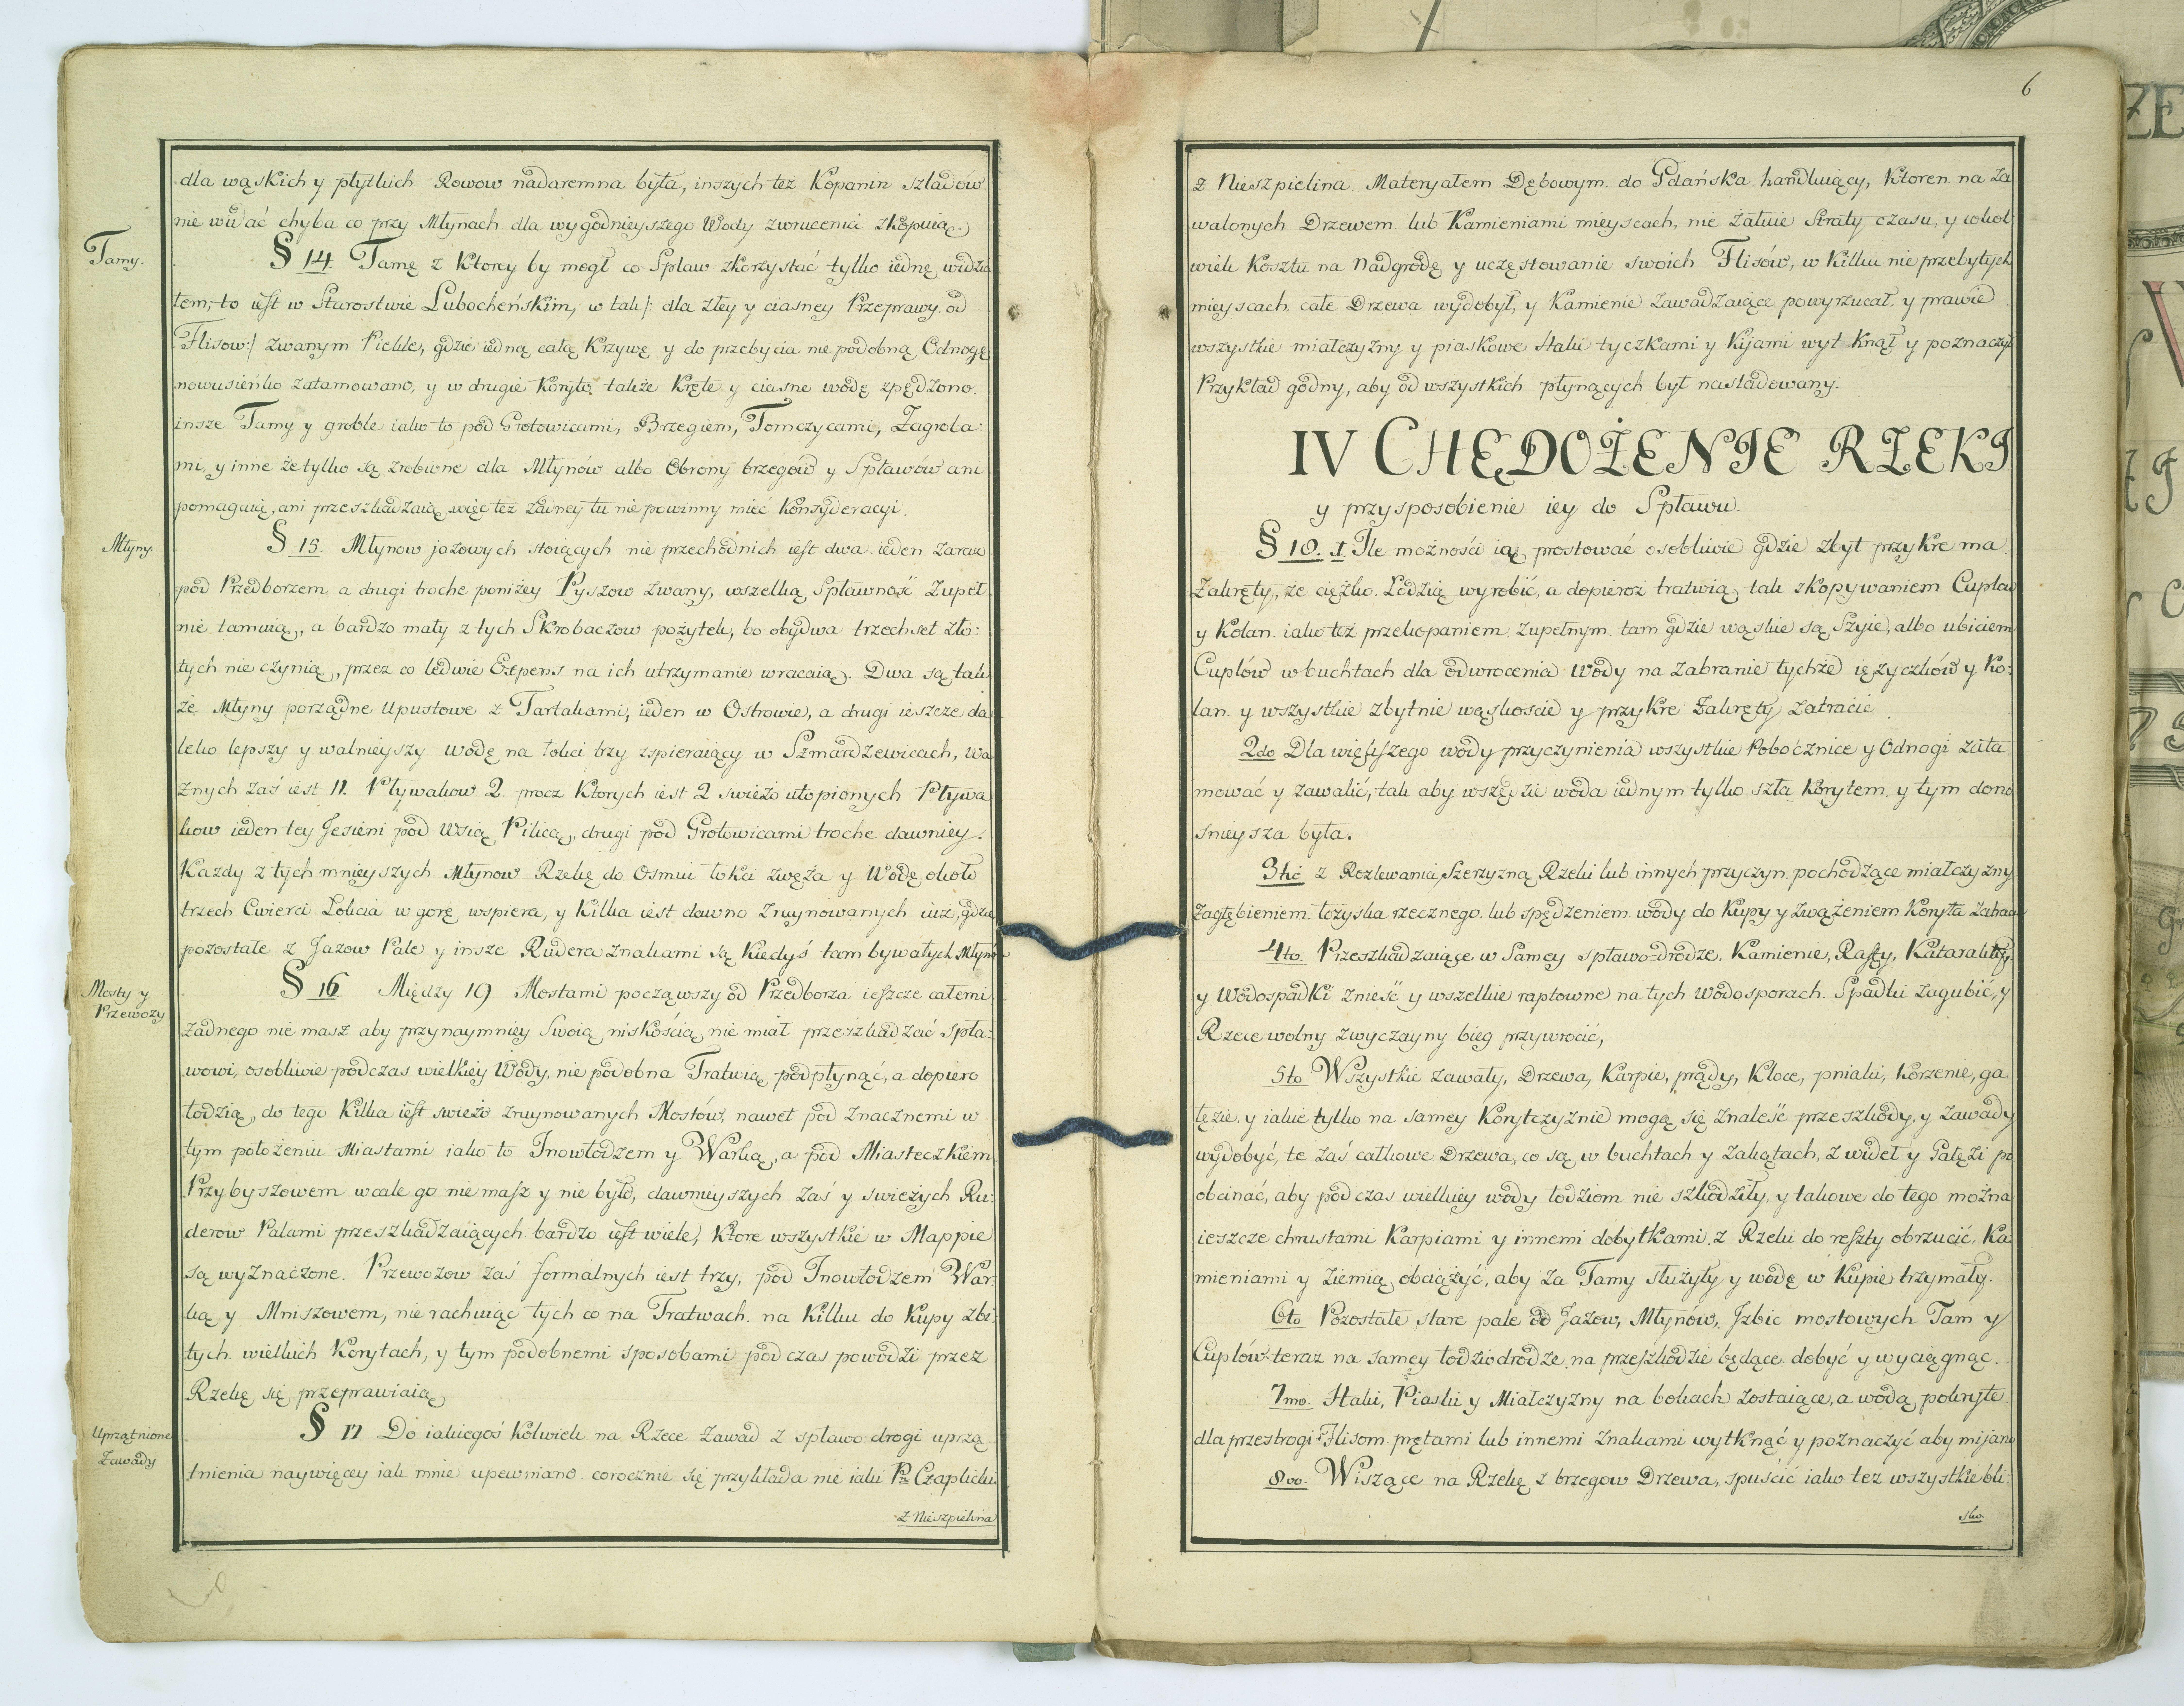 dla wąskich y płytkich Rowow nadaremna była, inszych też Kopanin szladów
nie widać chyba co przy Młynach dla wygodnieyszego Wody zwrucenia zkopuią.
Tamy.
§ 14. Tamę z Ktorey by mogł co Spław zkorzystać tylko iednę widzia
łem, to iest w Starostwie Lubocheńskim, w tak /: dla złey y ciasney Przeprawy od
Flisow:/ zwanym Piekle, gdzie iedną całą Krzywę y do przebycia nie podobną Odnogę
nowusieńko zatamowano, y w drugie Koryto także Kręte y ciasne wodę zpędzono.
insze Tamy y groble iako to pod Grotowicami, Brzegiem, Tomczycami, Zagroba:
mi, y inne że tylko są zrobione dla Młynów albo Obrony brzegów y Spławów ani
pomagaią, ani przeszkadzaią, więc też żadney tu nie powinny mieć Konsyderacyi.
Młyny.
§ 15. Młynow jazowych stoiących nie przechodnich iest dwa ieden zaraz
pod Przedborzem a drugi troche poniżey Pyszow zwany, wszelką Spławność zupeł
nie tamuią, a bardzo mały z tych Skrobaczow pożytek, bo obydwa trzechset zło:
tych nie czynią, przez co ledwie Expens na ich utrzymanie wracaią. Dwa są tak
że Młyny porządne Upustowe z Tartakami, ieden w Ostrowie, a drugi ieszcze da
leko lepszy y walnieyszy wodę na łokci trzy zspieraiący w Szmardzewicach, Wa
żnych zaś iest 11. Pływakow 2. procz Ktorych iest 2 swieżo utopionych Pływa
kow ieden tey Jesieni pod Wsią Pilicą, drugi pod Grotowicami troche dawniey.
Kazdy z tych mnieyszych Młynow Rzekę do Osmiu łokci zwęża y Wodę około
trzech Cwierci Łokcia w gorę wspiera, y Kilka iest dawno zruynowanych iuż, gdzie
pozostałe z Jazow Pale y insze Rudera znakami są Kiedyś tam bywałych Młynow
Mosty y
Przewozy
§ 16 Między 19 Mostami począwszy od Przedborza ieszcze całemi
żadnego nie masz aby przynaymniey Swoią niskością nie miał przeszkadzać Spła:
wowi, osobliwie podczas wielkiey Wody, nie podobna Tratwią podpłynąć, a dopiero
łodzią, do tego Kilka iest swieżo zruynowanych Mostów, nawet pod znacznemi w
tym położeniu Miastami iako to Inowłodzem y Warką, a pod Miasteczkiem
Przybyszowem wcale go nie masz y nie było, dawnieyszych zaś y swieżych Ru:
derow Palami przeszkadzaiących bardzo iest wiele, Ktore wszystkie w Mappie
są wyznaczone. Przewozow zaś formalnych iest trzy, pod Inowłodzem War
ką y Mniszowem, nie rachuiąc tych co na Tratwach na Kilku do Kupy zbi:
tych wielkich Korytach, y tym podobnemi sposobami podczas powodzi przez
Rzekę się przeprawiaią
Uprzątnione
Zawady
§ 17 Do iakiegoś Kolwiek na Rzece Zawad z spławo-drogi uprzą
tnienia naywięcey iak mnie upewniano corocznie się przykłada nie iaki Pn Czaplicki
z Nieszpielina
6
z Nieszpielina Materyałem Dębowym do Gdańska handluiący, Ktoren na za
walonych Drzewem lub Kamieniami mieyscach, nie żałuie Straty czasu, y cokol
wiek Kosztu na Nadgrodę y uczęstowanie swoich Flisów, w Kilku nie przebytych
mieyscach całe Drzewa wydobył, y Kamienie zawadzaiące powyrzucał y prawie
wszystkie miałczyzny y piaskowe Haki tyczkami y Kijami wytknął y poznaczył
Przykład godny, aby od wszystkich płynących był nasladowany.
IV CHĘDOŻENIE RZEKI
y przysposobienie iey do Spławu.
§ 18. I. Ile możności ią prostować osobliwie gdzie zbyt przykre ma
Zakręty, że ciężko Łodzią wyrobić, a dopieroż tratwią, tak zkopywaniem Cuplow
y Kolan iako też przekopaniem zupełnym tam gdzie wąskie są Szyie, albo ubiciem
Cuplów w buchtach dla odwrocenia Wody na zabranie tychże ięzyczków y Ko:
lan y wszystkie zbytnie wąskoscie y przykre Zakręty zatracić
2do Dla większego wody przyczynienia wszystkie Pobocznice y Odnogi zata
mować y zawalić, tak aby wszędzie woda iednym tylko szła Korytem y tym dono
śnieysza była.
3tio z Rozlewania, Szerzyzną Rzeki lub innych przyczyn pochodzące miałczyzny
Zagłębieniem łożyska rzecznego lub spędzeniem wody do Kupy y zwążeniem Koryta zatrac
4to. Przeszkadzaiące w Samey spławo-drodze, Kamienie, Raffy, Katarakty
y Wodospadki znieść y wszelkie raptowne na tych wodosporach Spadki zagubić, y
Rzece wolny zwyczayny bieg przywrocić,
5to Wszystkie zawały, Drzewa, Karpie, prądy, Kloce, pniaki, Korzenie, ga
łęzie y iakie tylko na samey Korytczyznie mogą się znaleść przeszkody y zawady
wydobyć, te zaś całkowe Drzewa, co są w buchtach y zakątach, z wideł y Gałęzi po
obcinać, aby podczas wielkiey wody łodziom nie szkodziły, y takowe do tego można
ieszcze chrustami Karpiami y innemi dobytkami z Rzeki do reszty obrzucić, Ka
mieniami y ziemią obciążyć, aby za Tamy służyły y wodę w Kupie trzymały.
6to Pozostałe stare pale od Jazow, Młynów, Izbic mostowych Tam y
Cuplów teraz na samey łodziodrodze na przeszkodzie będące dobyć y wyciągnąc.
7mo. Haki, Piaski y Miałczyzny na bokach zostaiące, a wodą pokryte
dla przestrogi Flisom prętami lub innemi znakami wytknąć y poznaczyć aby mijano
8vo. Wiszące na Rzekę z brzegow Drzewa, spuścić iako tez wszystkie bli
sko